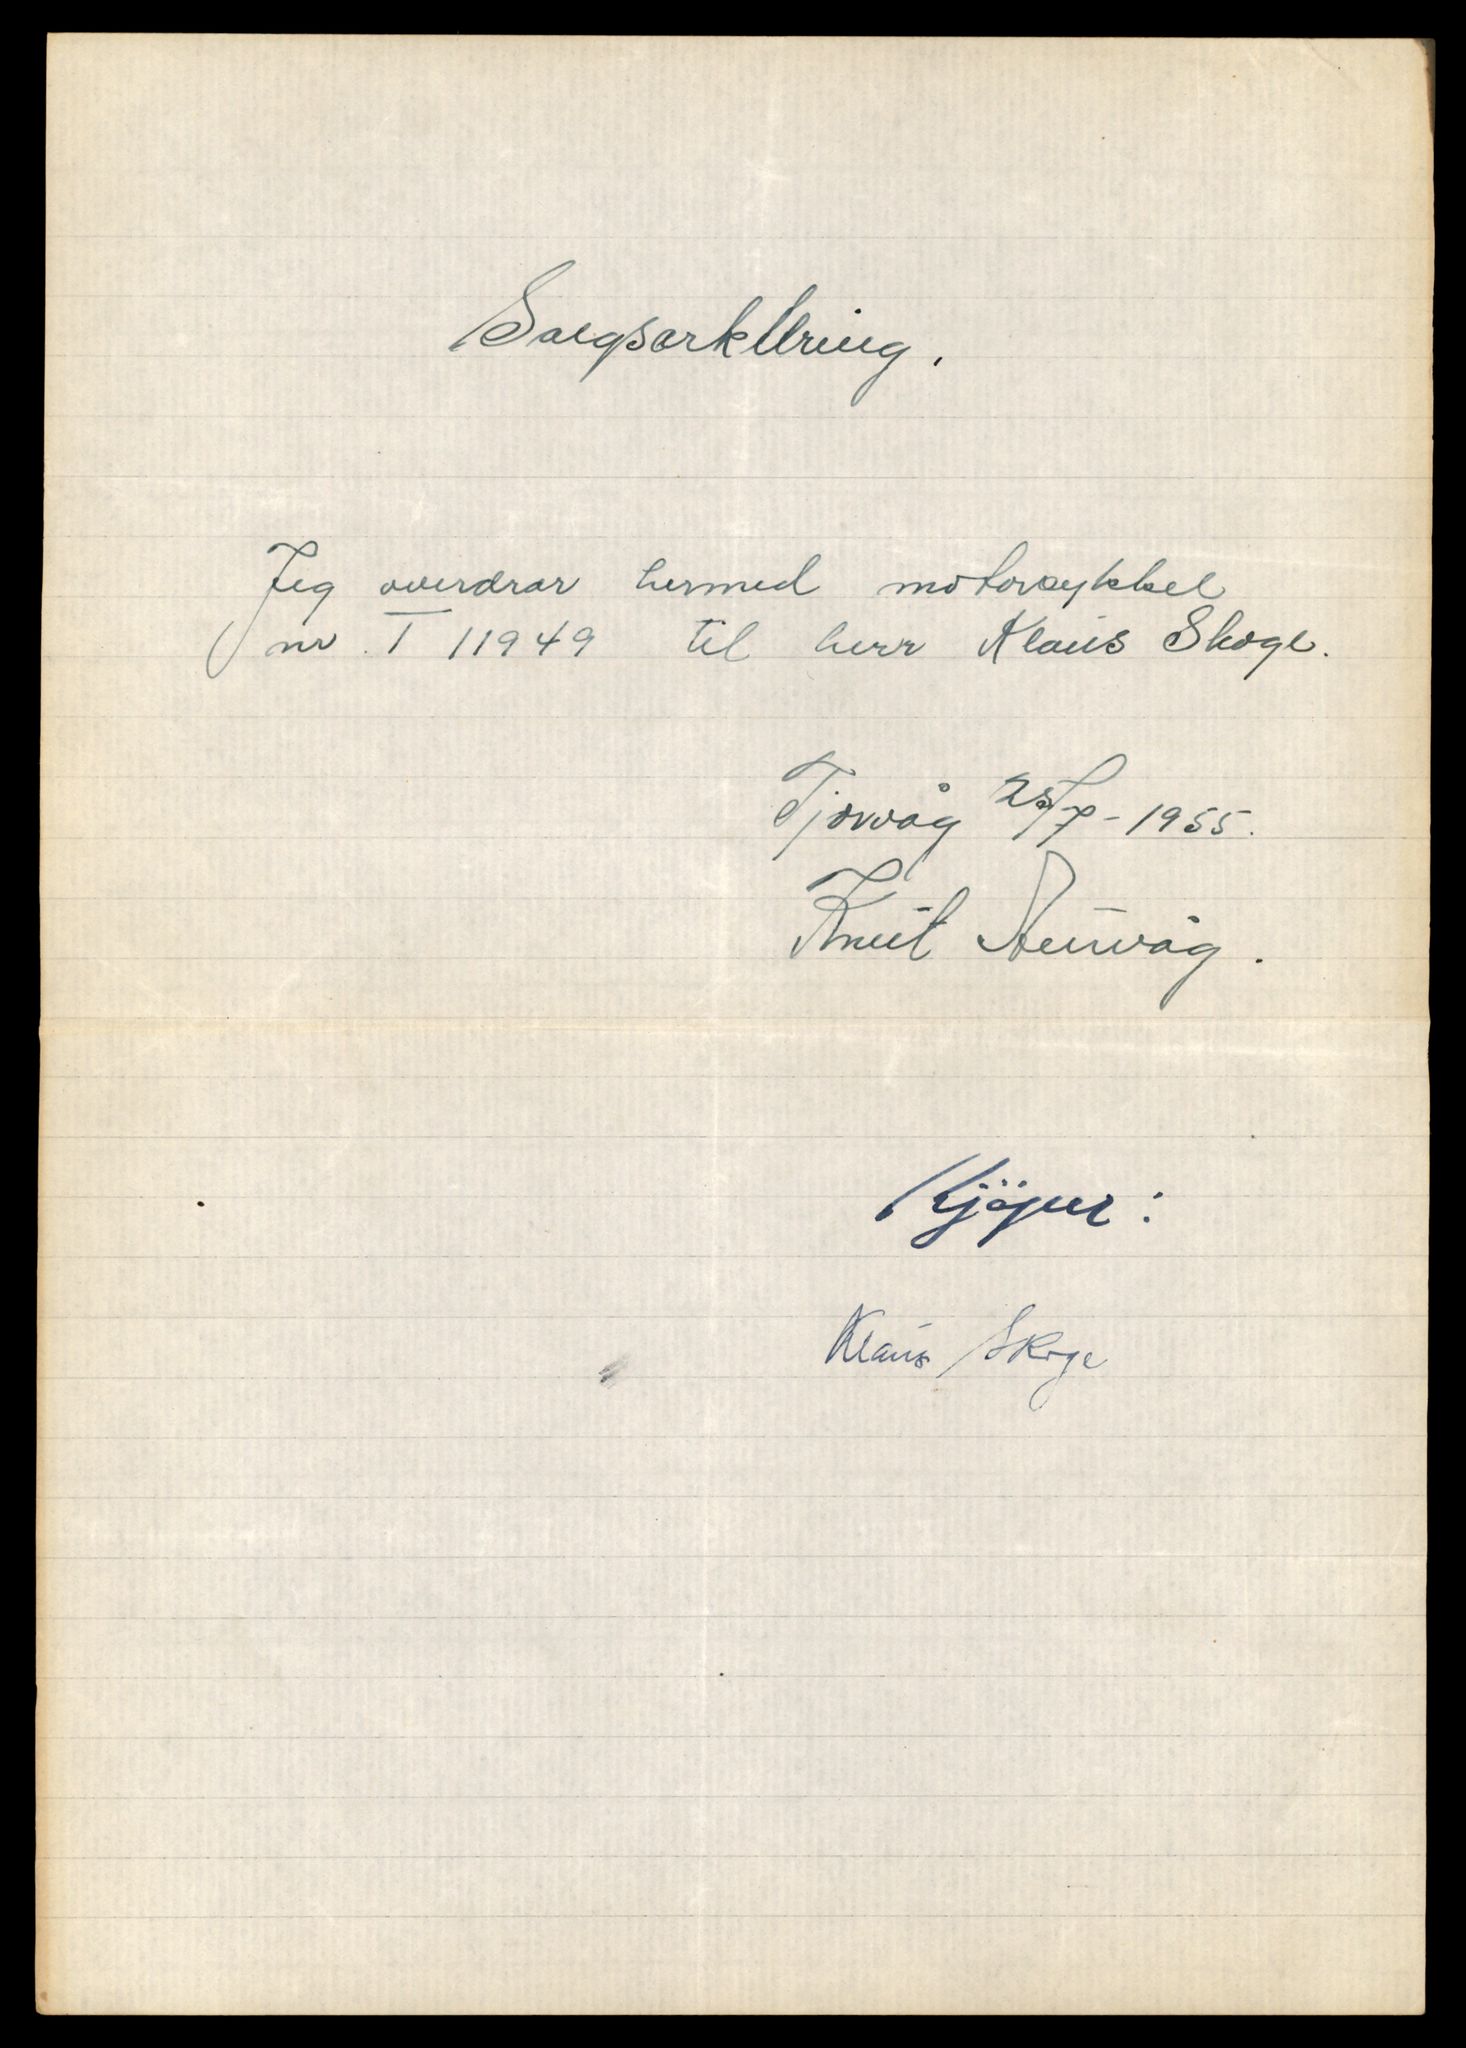 Salgserklering.
Jeg overdrar hermed motorsykkel
nr. T 11949 til herr Klaus Skoge.
Tjørvåg 25/7-1955.
Knut Aurvåg.
Kjöper:
Klaus Skoge